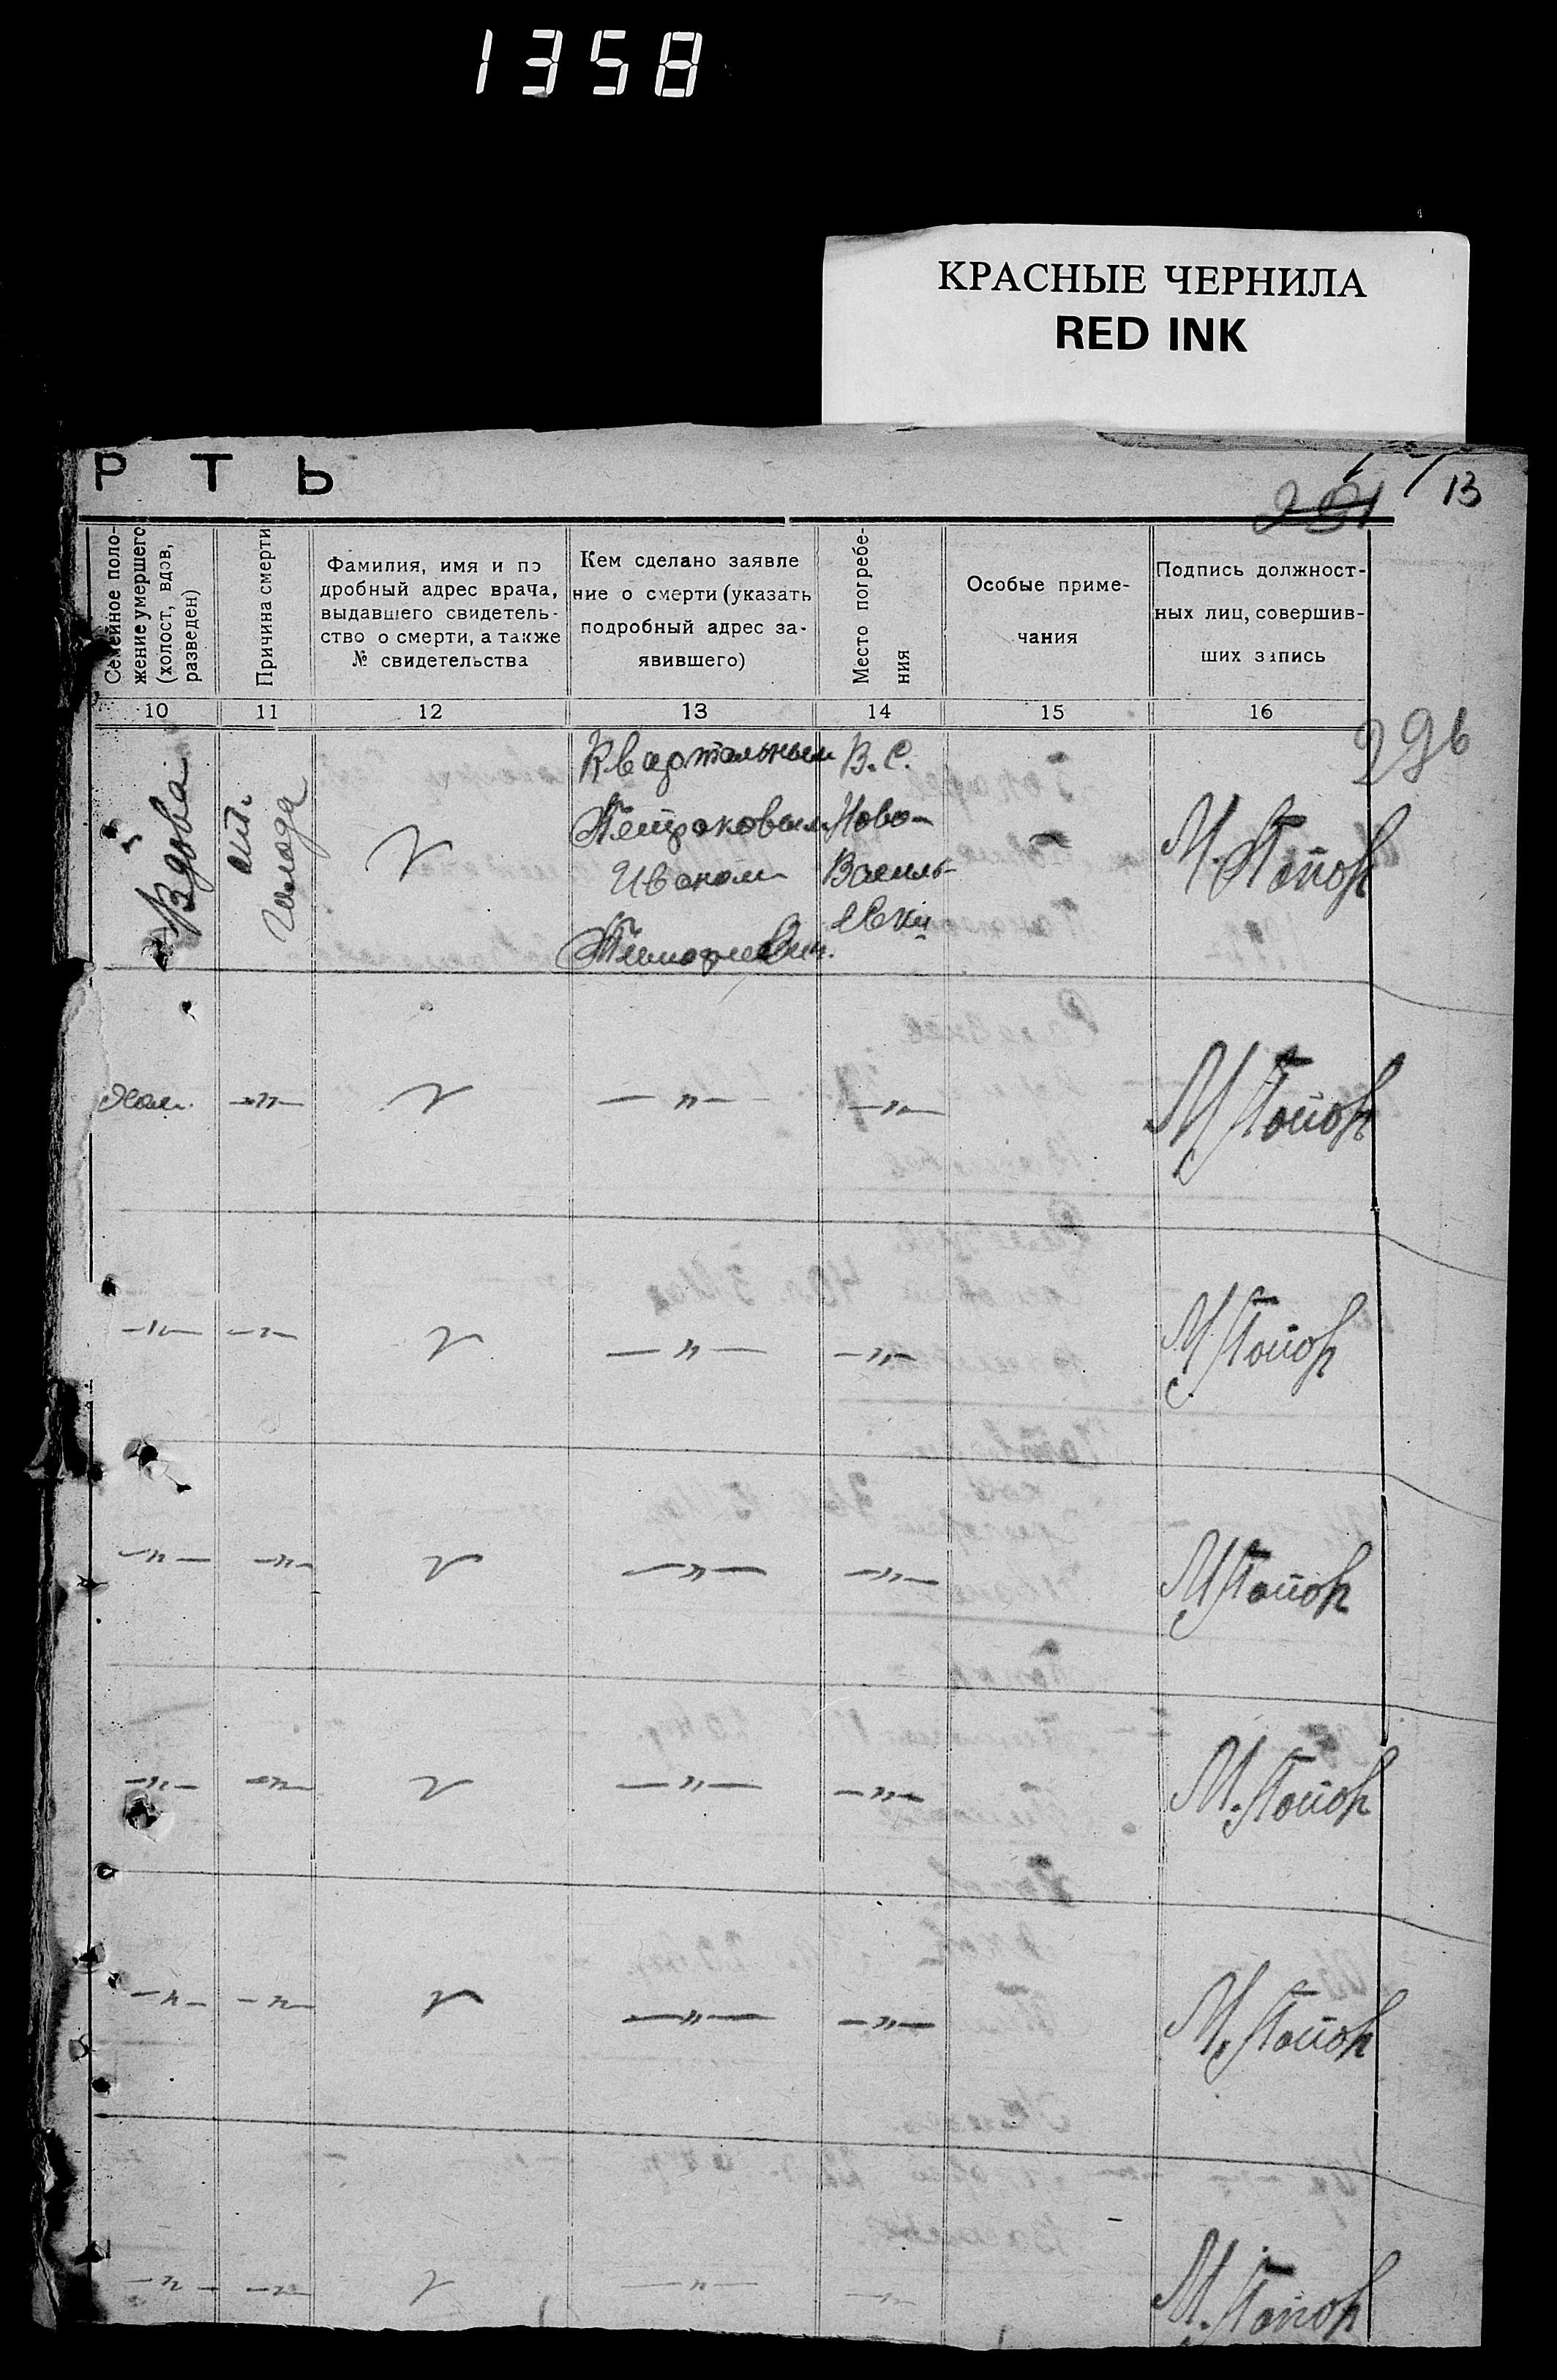 1358
КРАСНЫЕ ЧЕРНИЛА
RED INK
Р Т Ь
13
Семейное поло-
жение умершего
(холост, вдов,
разведен)
Причина смерти
Фамилия, имя и по
дробный адрес врача,
выдавшего свидетель-
ство о смерти, а также
№ свидетельства
Кем сделано заявле
ние о смерти (указать
подробный адрес за-
явившего)
Место погребе-
ния
Особые приме-
чания
Подпись должност-
ных лиц, совершив-
ших запись
10 11 12 13 14 15 16
296
Вдова
от
голода
Квартальным
Петраковым
Иваном
В. С.
Ново-
Василь-
евки
М. Попов
Хол. —"— —"— —"— М Попов
—"— —"— —"— —"— М Попов
—"— —"— —"— —"— М Попов
—"— —"— —"— —"— М. Попов
—"— —"— —"— —"— М. Попов
—"— —"— —"— —"— М. Попов